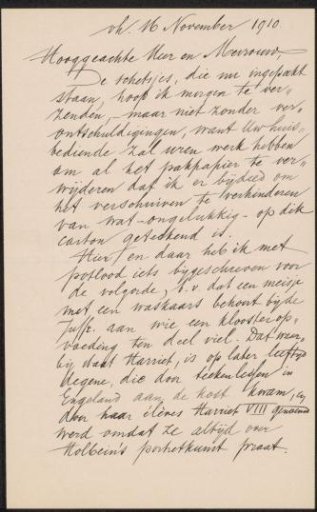 oh. 16 November 1910.
Hooggeachte Heer en Mevrouw,
De schetsjes, die nu ingepakt
staan, hoop ik morgen te ver-
zenden, maar niet zonder ver-
ontschuldigingen, want Uw huis-
bediende zal uren werk hebben
om al het pakpapier te ver-
wijderen dat ik er bijdeed om
het verschuiven te verhinderen
van wat - ongelukkig - op dik
carton geteekend is.
Hier en daar heb ik met
potlood iets bygeschreven voor
de volgorde, b.v. dat een meisje
met een waskaars behoort by de
Jufr. aan wie een klooster op-
voeding ten deel viel. Dat waar-
by staat Harriet, is op later leeftyd
degene, die door teekenlessen in
Engeland aan de kost kwam, en
door haar élèves Harriet VIII genoemd
werd omdat ze altyd over
Holbein's portretkunst praat.